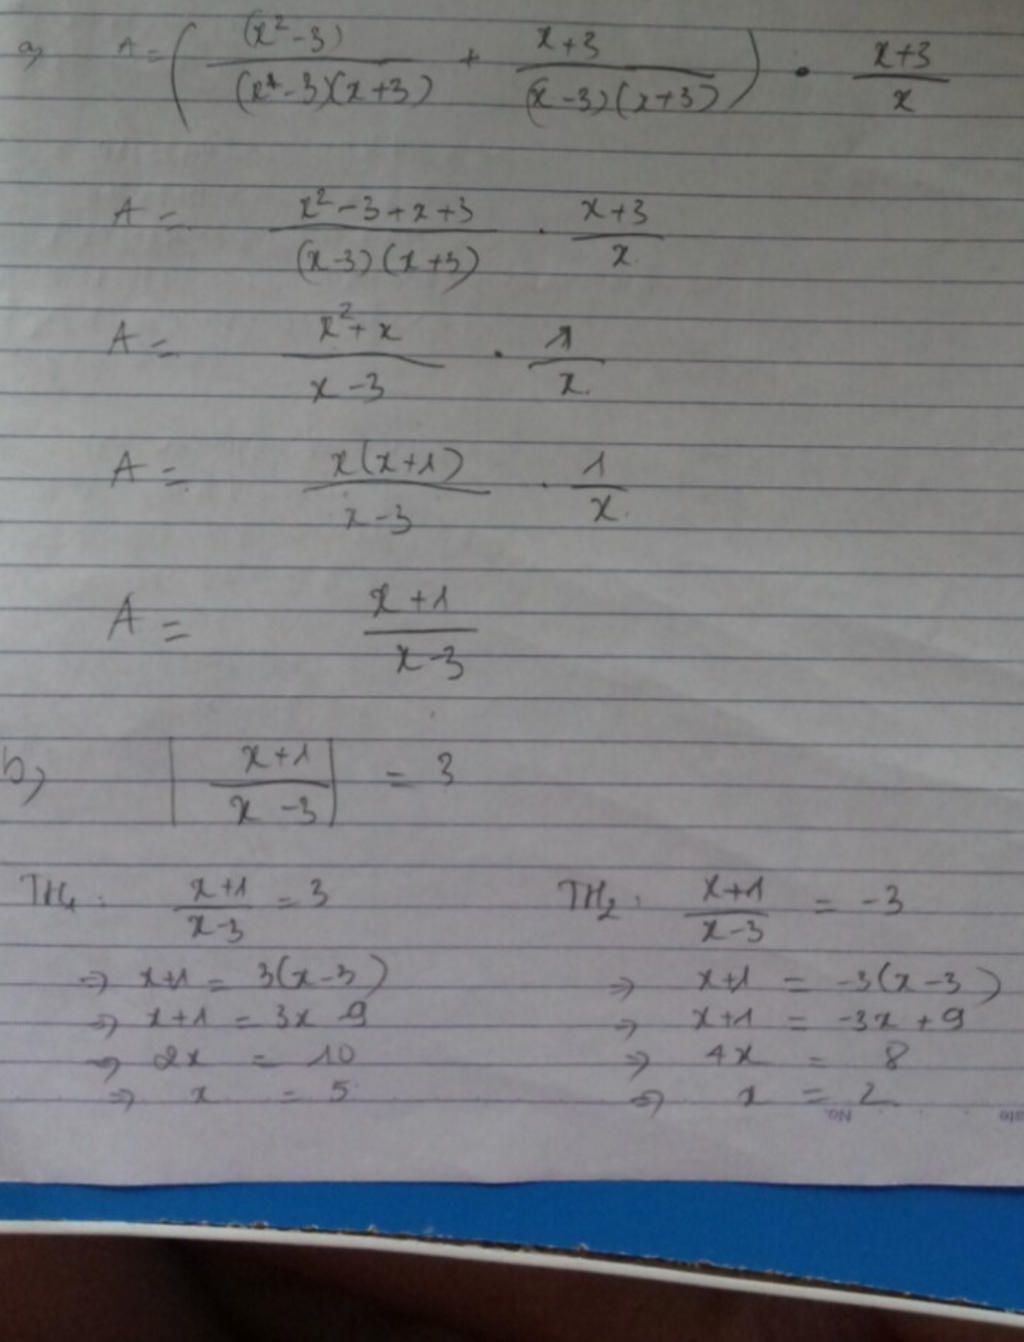 a) A = ( (x² - 3) / (x - 3)(x + 3) + x + 3 / (x - 3)(x + 3) ) . x + 3 / x
A = x² - 3 + x + 3 / (x - 3)(x + 3) . x + 3 / x
A = x² + x / x - 3 . 1 / x
A = x(x + 1) / x - 3 . 1 / x
A = x + 1 / x - 3
b) | x + 1 / x - 3 | = 3
TH1 : x + 1 / x - 3 = 3
=> x + 1 = 3(x - 3)
=> x + 1 = 3x - 9
=> 2x = 10
=> x = 5
TH2 : x + 1 / x - 3 = -3
=> x + 1 = -3(x - 3)
=> x + 1 = -3x + 9
=> 4x = 8
=> x = 2
No.